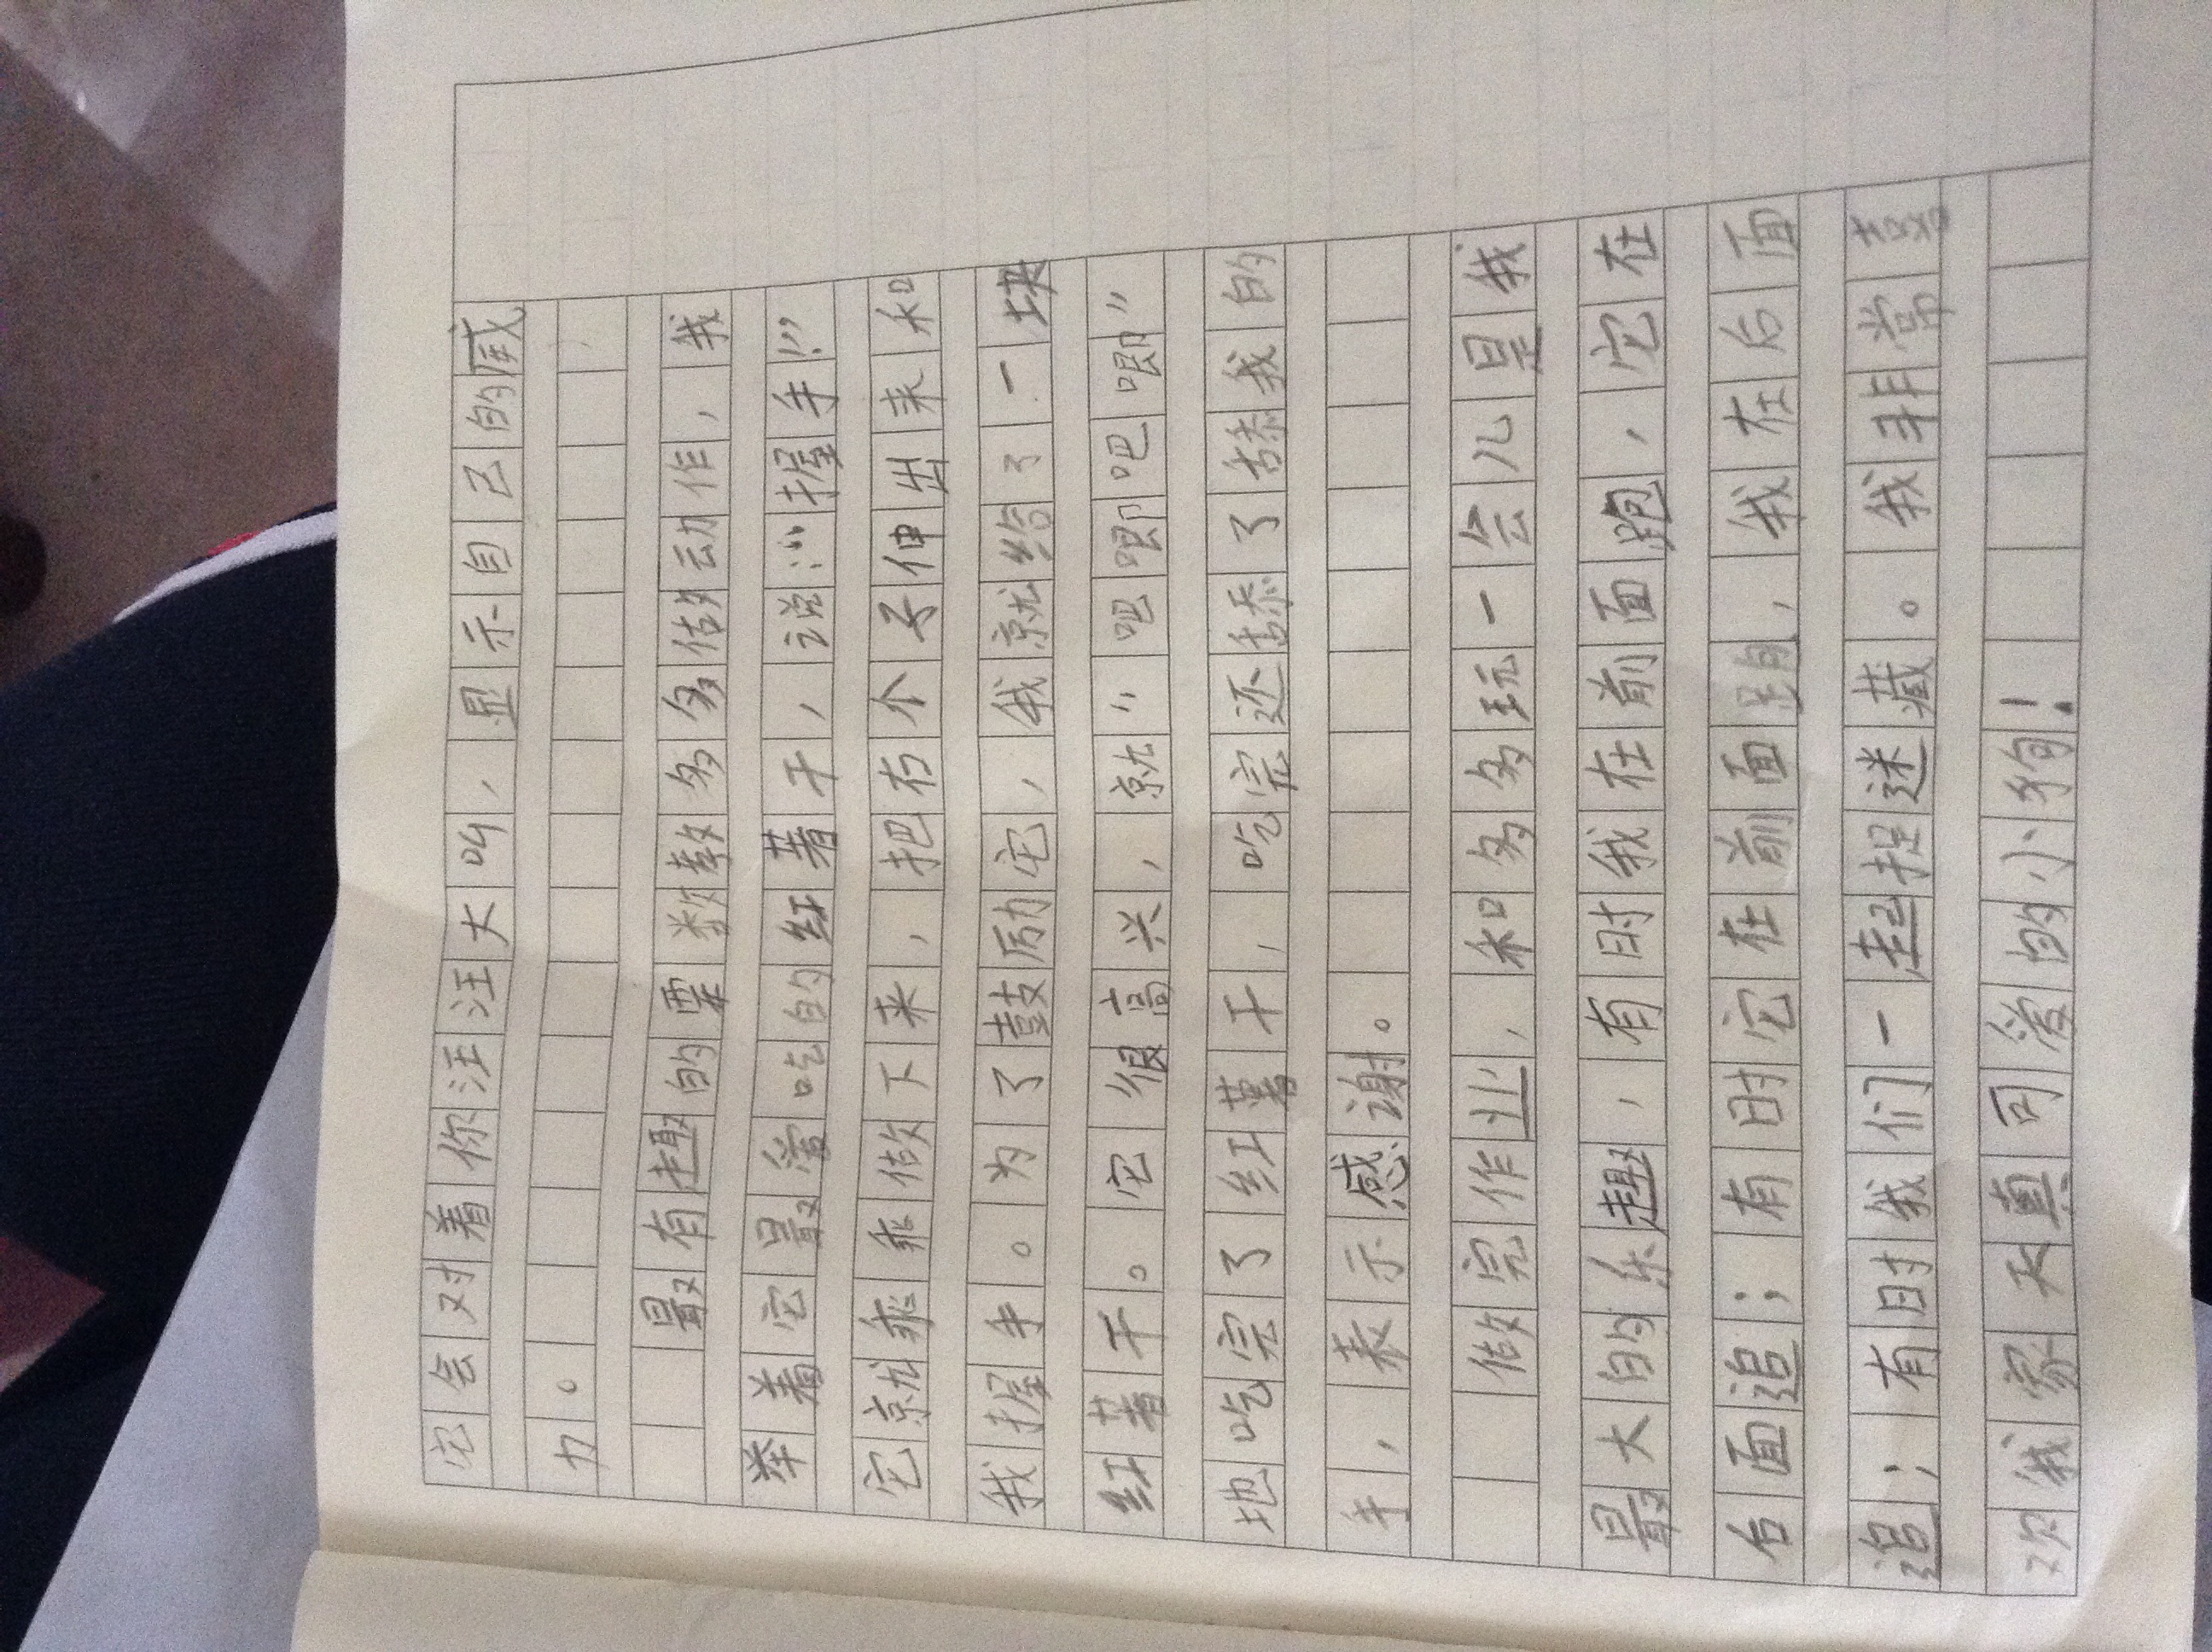 它会对着你汪汪大叫，显示自己的威
力。
最有趣的要数教多多做动作，我
举着它最爱吃的红薯干，说：“握手！”
它就乖乖做下来，把右个子伸出来和
我握手。为了鼓励它，我就给了一块
红薯干。它很高兴，就“吧唧吧唧”
地吃完了红薯干，吃完还舔了舔我的
手，表示感谢。
做完作业，和多多玩一会儿是我
最大的乐趣，有时我在前面跑，它在
后面追；有时它在前面跑，我在后面
追；有时我们一起捉迷藏。我非常喜
欢我家天真可爱的小狗！